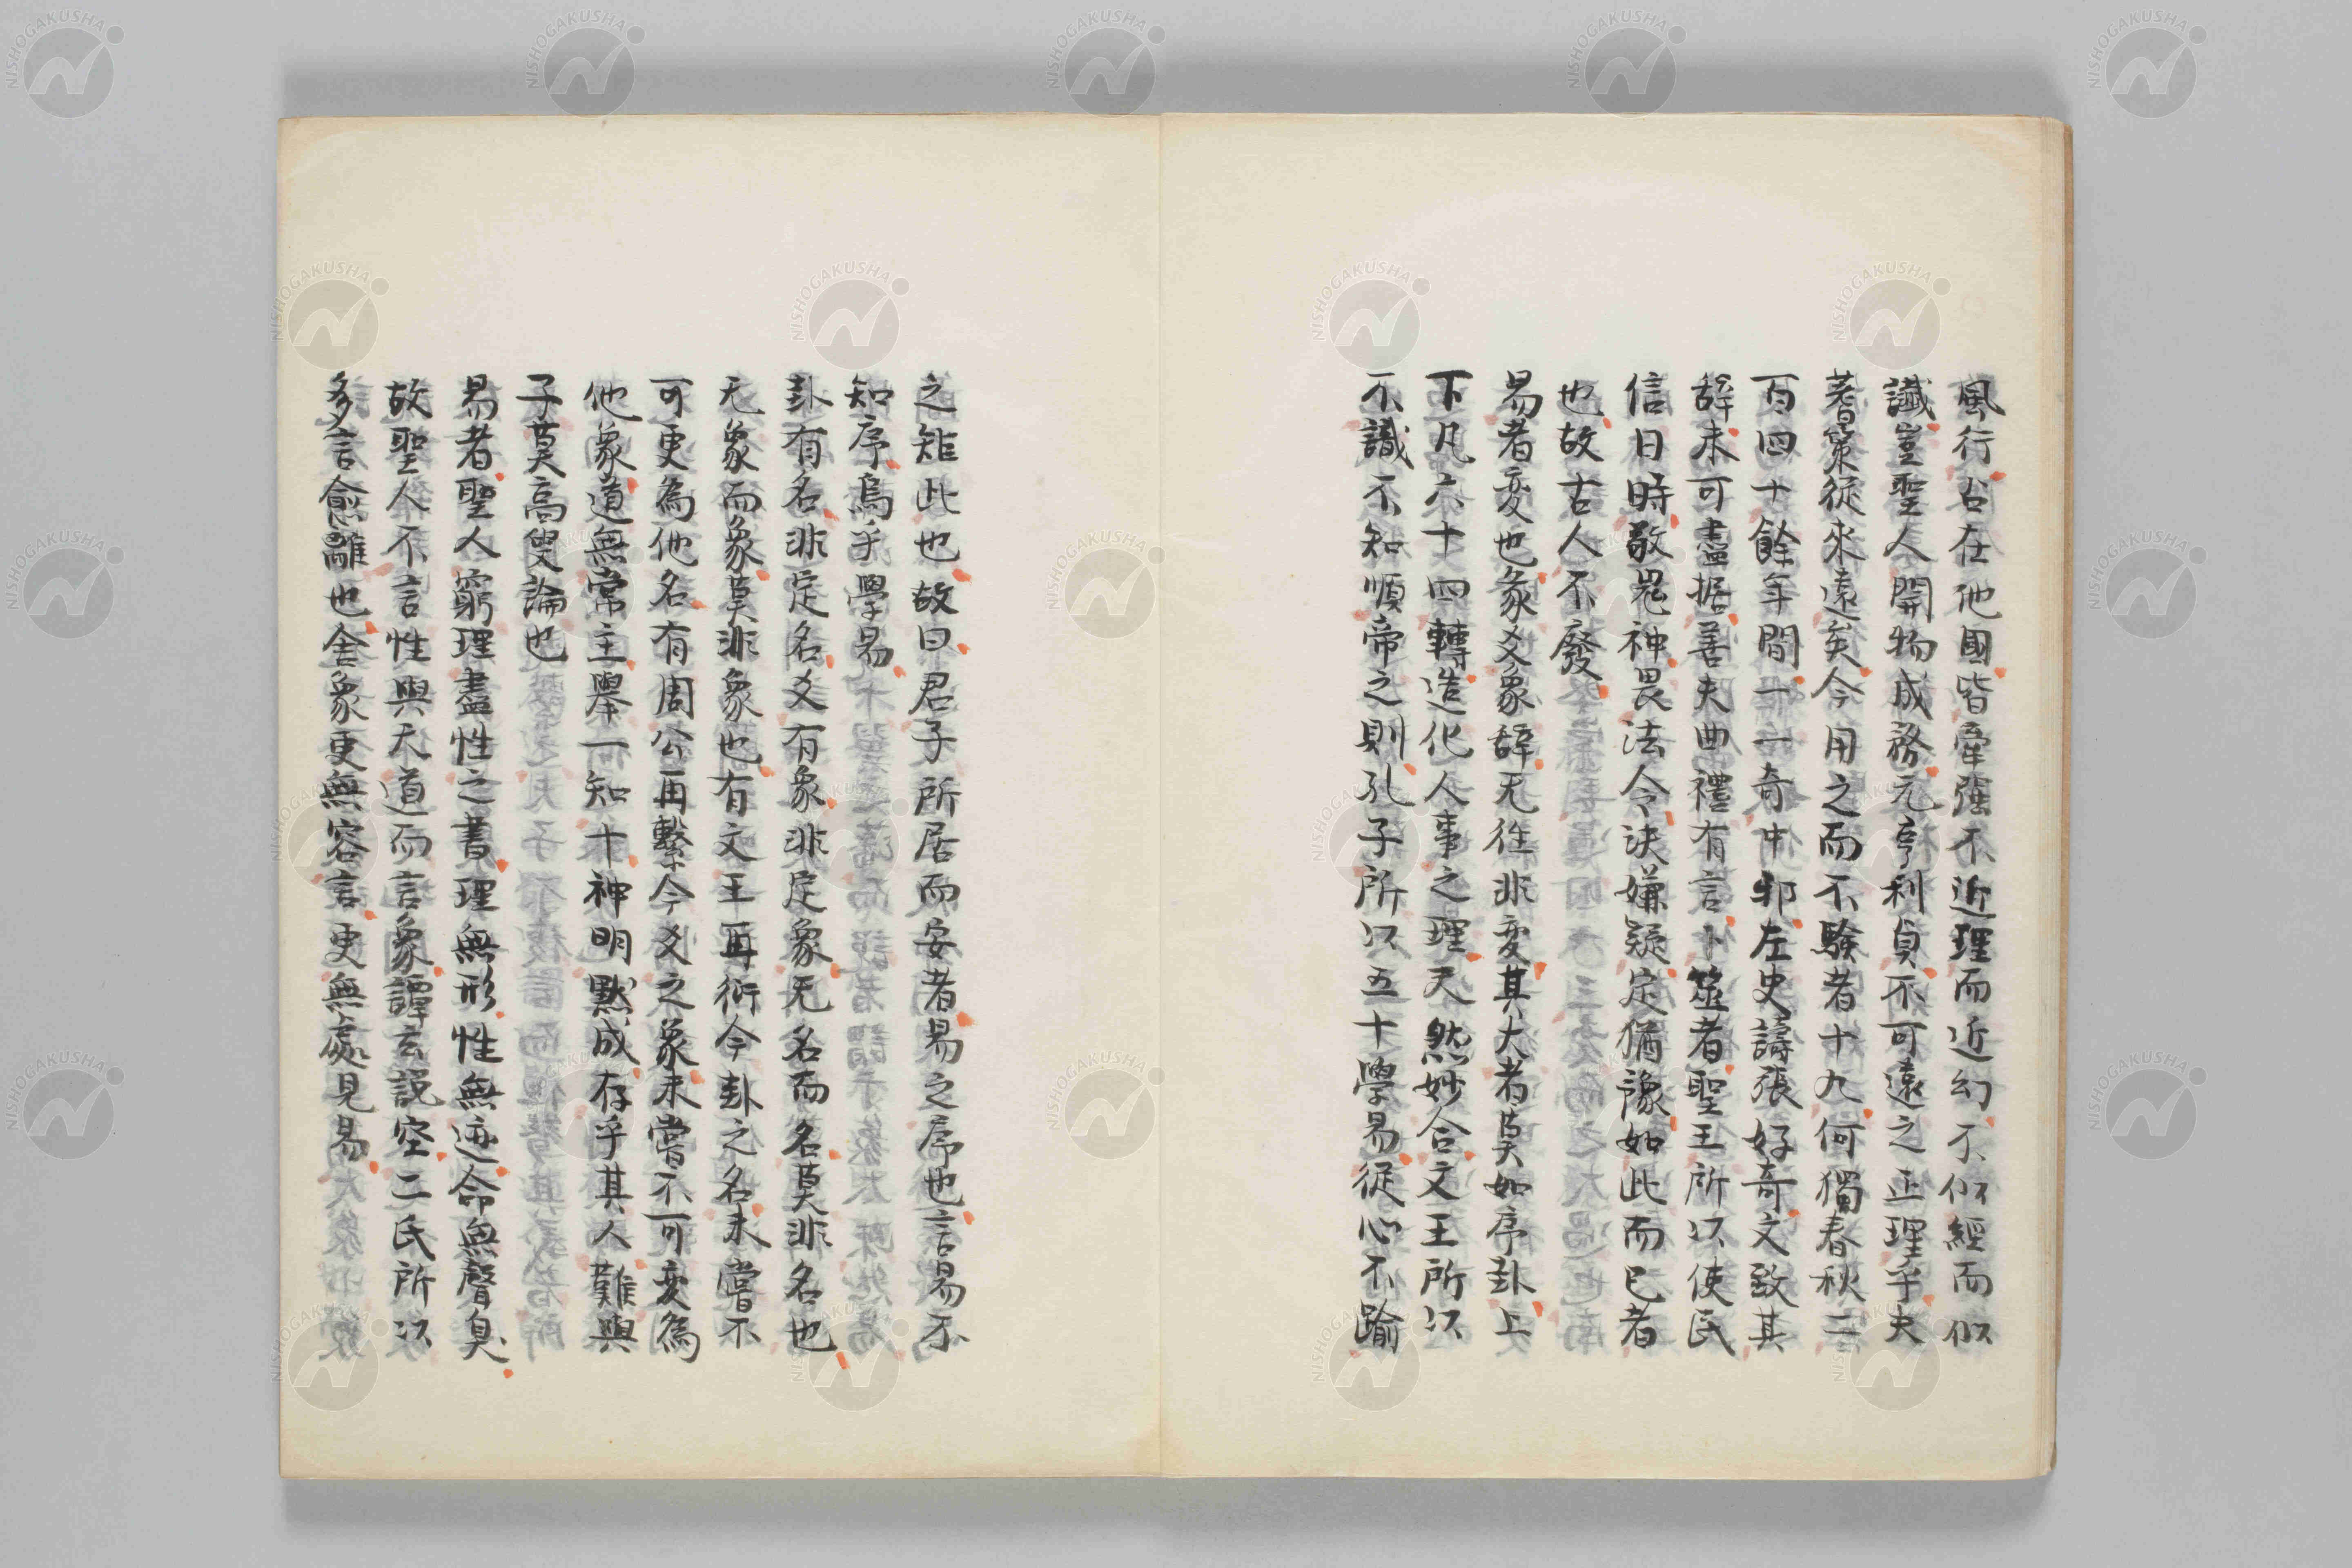 風行占在他國皆牽强不近理而近幻不似經而似
讖豈聖人開物成務元亨利貞不可遠之正理乎夫
蓍策從來遠矣今用之而不験者十九何獨春秋二
百四十餘年間一一奇中邪左史譸張好奇文致其
辞未可盡据善夫曲禮有言卜筮者聖王所以使民
信日時敬鬼神畏法令決嫌疑定猶豫如此而已者
也故古人不廢
易者変也彖爻象辞无徃非変其大者莫如序卦上
下凡六十四轉造化人事之理天然妙合文王所以
不識不知順帝之則孔子所以五十學易從心不踰
之矩此也故曰君子所居而安者易之序也言易不
知序烏乎學易
卦有名非定名爻有象非定象无名而名莫非名也
无象而象莫非象也有文王再衍今卦之名未嘗不
可更為他名有周公再繫今爻之象未嘗不可変為
他象道無常主舉一知十神明黙成存乎其人難與
子莫高叟論也
易者聖人窮理盡性之書理無形性無迹命無聲臭
故聖人不言性與天道而言象譚玄説空二氏所以
多言愈離也舍象更無容言更無處見易
NISHOGAKUSHA